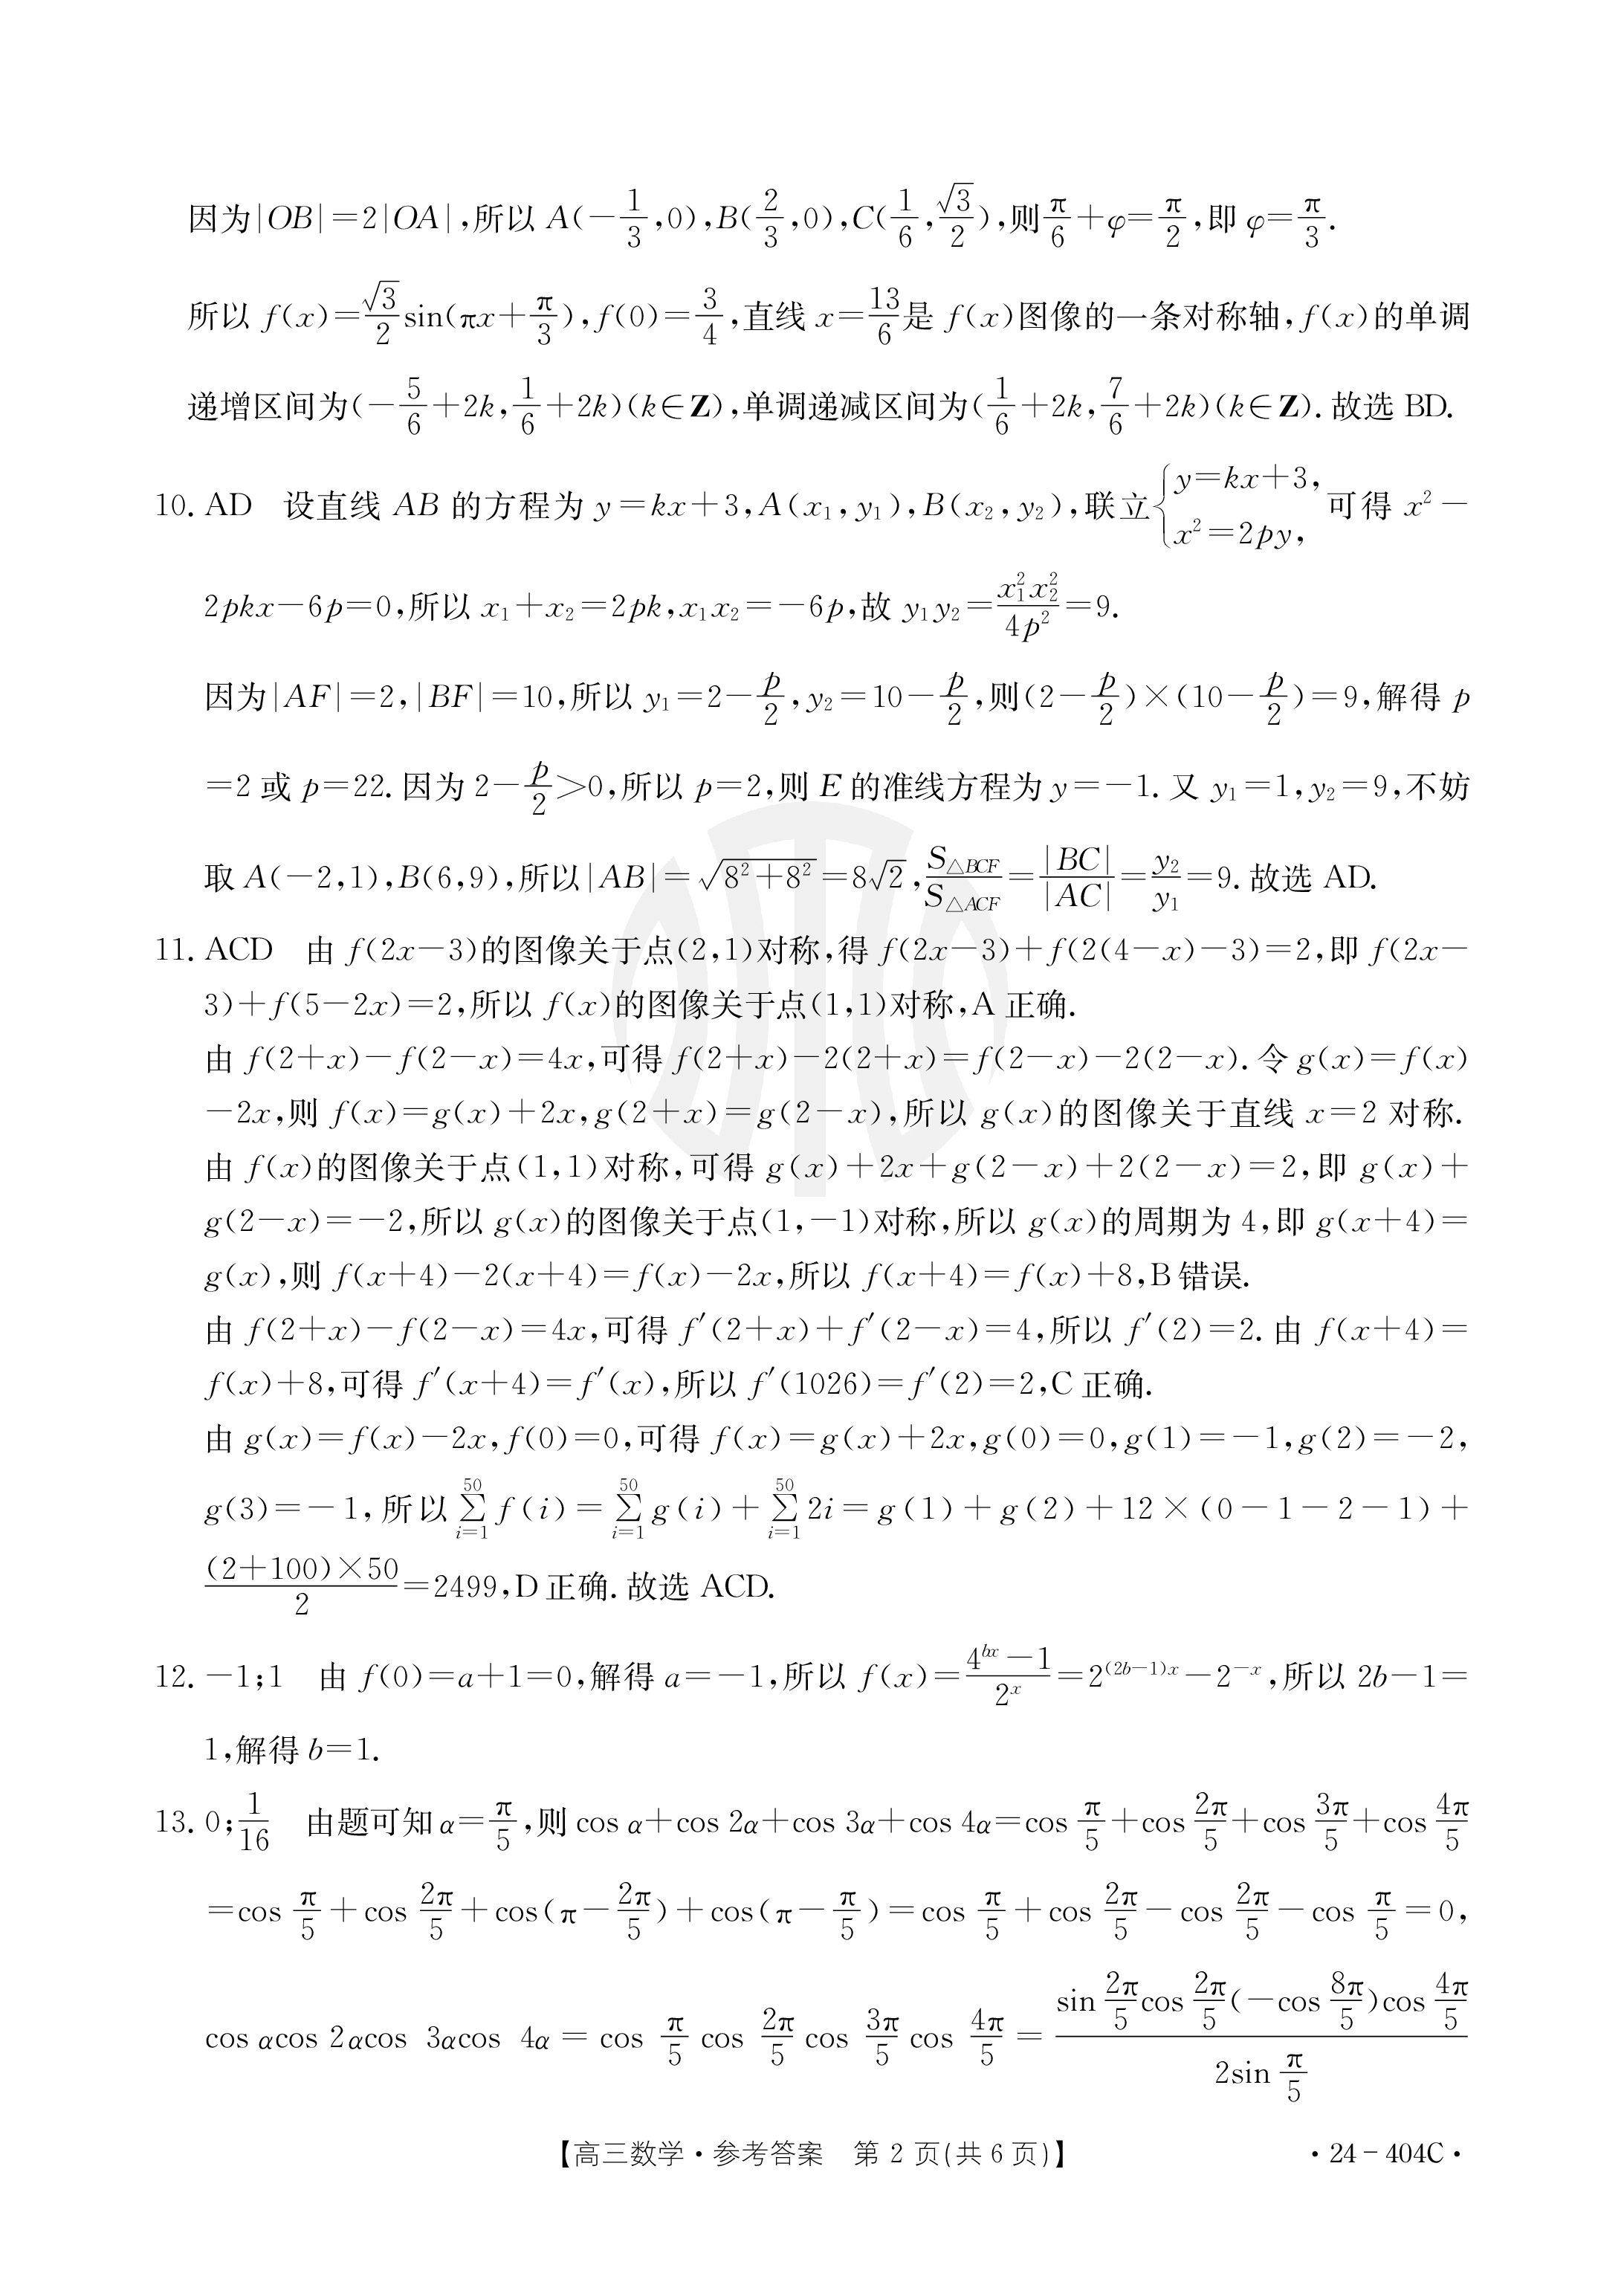 因为|OB|=2|OA|,所以 A(-1/3,0),B(2/3,0),C(1/6,√3/2),则π/6+φ=π/2,即 φ=π/3.
所以 f(x)=√3/2sin(πx+π/3),f(0)=3/4,直线 x=13/6是 f(x)图像的一条对称轴,f(x)的单调
递增区间为(-5/6+2k,1/6+2k)(k∈Z),单调递减区间为(1/6+2k,7/6+2k)(k∈Z).故选 BD.
10. AD 设直线 AB 的方程为 y=kx+3,A(x₁,y₁),B(x₂,y₂),联立{y=kx+3, x²=2py, 可得 x²-
2pkx-6p=0,所以 x₁+x₂=2pk,x₁x₂=-6p,故 y₁y₂=x₁²x₂²/4p²=9.
因为|AF|=2,|BF|=10,所以 y₁=2-p/2,y₂=10-p/2,则(2-p/2)×(10-p/2)=9,解得 p
=2 或 p=22.因为 2-p/2>0,所以 p=2,则 E 的准线方程为 y=-1.又 y₁=1,y₂=9,不妨
取 A(-2,1),B(6,9),所以|AB|=√(8²+8²)=8√2,S△BCF/S△ACF=|BC|/|AC|=y₂/y₁=9.故选 AD.
11. ACD 由 f(2x-3)的图像关于点(2,1)对称,得 f(2x-3)+f(2(4-x)-3)=2,即 f(2x-
3)+f(5-2x)=2,所以 f(x)的图像关于点(1,1)对称,A 正确.
由 f(2+x)-f(2-x)=4x,可得 f(2+x)-2(2+x)=f(2-x)-2(2-x).令 g(x)=f(x)
-2x,则 f(x)=g(x)+2x,g(2+x)=g(2-x),所以 g(x)的图像关于直线 x=2 对称.
由 f(x)的图像关于点(1,1)对称,可得 g(x)+2x+g(2-x)+2(2-x)=2,即 g(x)+
g(2-x)=-2,所以 g(x)的图像关于点(1,-1)对称,所以 g(x)的周期为 4,即 g(x+4)=
g(x),则 f(x+4)-2(x+4)=f(x)-2x,所以 f(x+4)=f(x)+8,B 错误.
由 f(2+x)-f(2-x)=4x,可得 f′(2+x)+f′(2-x)=4,所以 f′(2)=2.由 f(x+4)=
f(x)+8,可得 f′(x+4)=f′(x),所以 f′(1026)=f′(2)=2,C 正确.
由 g(x)=f(x)-2x,f(0)=0,可得 f(x)=g(x)+2x,g(0)=0,g(1)=-1,g(2)=-2,
g(3)=-1,所以 ∑(i=1→50) f(i)=∑(i=1→50) g(i)+∑(i=1→50) 2i=g(1)+g(2)+12×(0-1-2-1)+
(2+100)×50/2=2499,D 正确.故选 ACD.
12. -1;1 由 f(0)=a+1=0,解得 a=-1,所以 f(x)=(4^(bx)-1)/2^x=2^((2b-1)x)-2^(-x),所以 2b-1=
1,解得 b=1.
13. 0;1/16 由题可知 α=π/5,则 cos α+cos 2α+cos 3α+cos 4α=cos π/5+cos 2π/5+cos 3π/5+cos 4π/5
=cos π/5+cos 2π/5+cos(π-2π/5)+cos(π-π/5)=cos π/5+cos 2π/5-cos 2π/5-cos π/5=0,
cos αcos 2αcos 3αcos 4α=cos π/5 cos 2π/5 cos 3π/5 cos 4π/5=(sin 2π/5 cos 2π/5(-cos 8π/5)cos 4π/5)/(2sin π/5)
【高三数学·参考答案 第 2 页(共 6 页)】 ·24-404C·